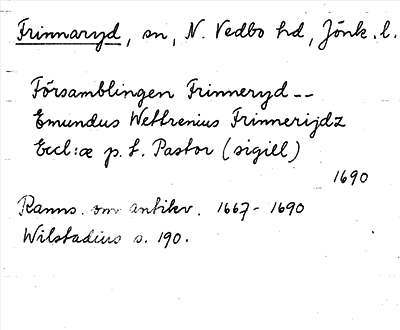 Frinnaryd, sn, N. Vedbo hd, Jönk. l.
Församblingen Frinneryd --
Emundus Wettrenius Frinnerijdz
Eccl:æ p. t. Pastor (sigill)
1690
Ranns. om antikv. 1667-1690
Wilstadius s. 190.